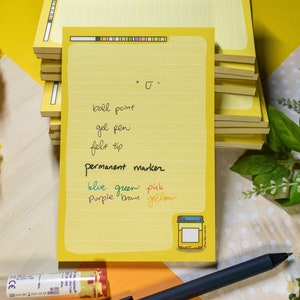 ball point
gel pen
felt tip
permanent marker
blue green pink
purple brown yellow